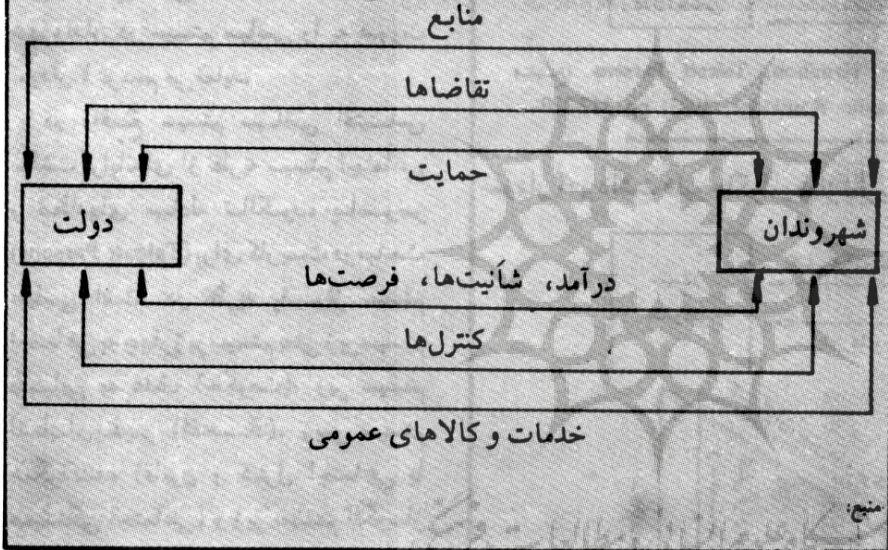 منابع
تقاضاها
حمایت
دولت
شهروندان
درآمد، شأنیت‌ها، فرصت‌ها
کنترل‌ها
خدمات و کالاهای عمومی
منبع: